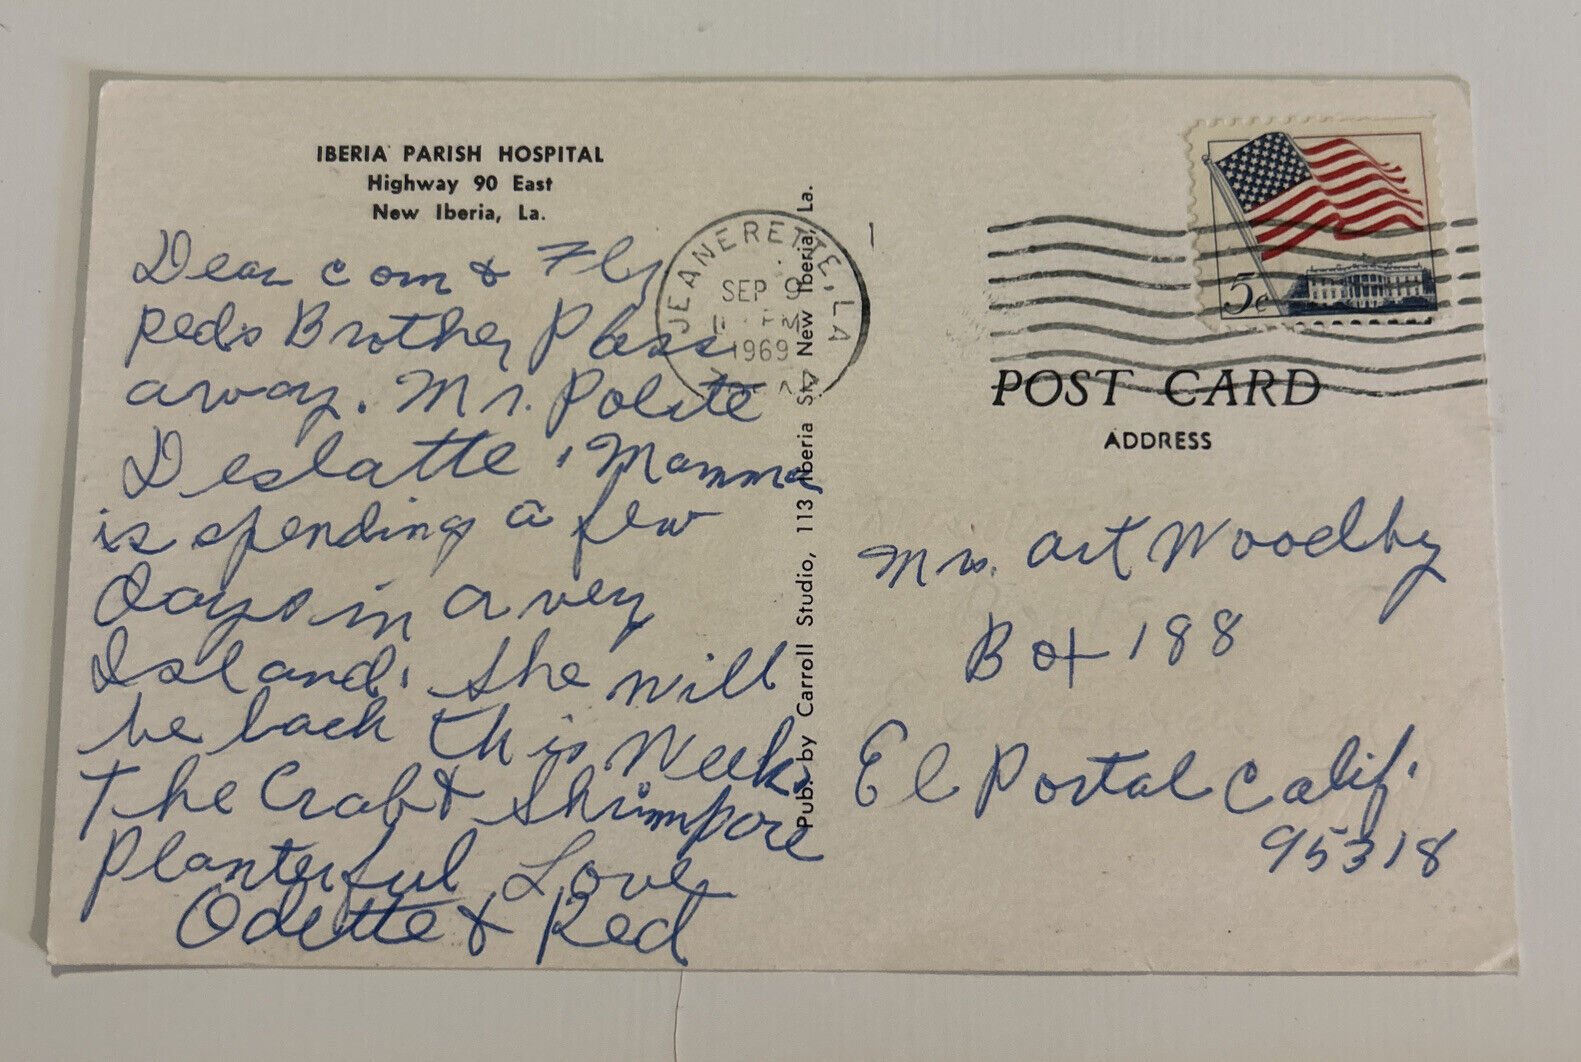 IBERIA PARISH HOSPITAL
Highway 90 East
New Iberia, La.
Dear com & Fly
Red's Brother Pass
away. Mr. Polite
Deslatte. Mamma
is spending a few
Days in avery
Island. she will
be back this Week.
The Crab & Shrimp are
Planterful Love
Odette & Red
JEANERETTE, LA
SEP 9
PM
1969
Pub. by Carroll Studio, 113 Iberia St., New Iberia, La.
5c
POST CARD
ADDRESS
Mrs. Art Woodby
Box 188
El Portal Calif.
95318